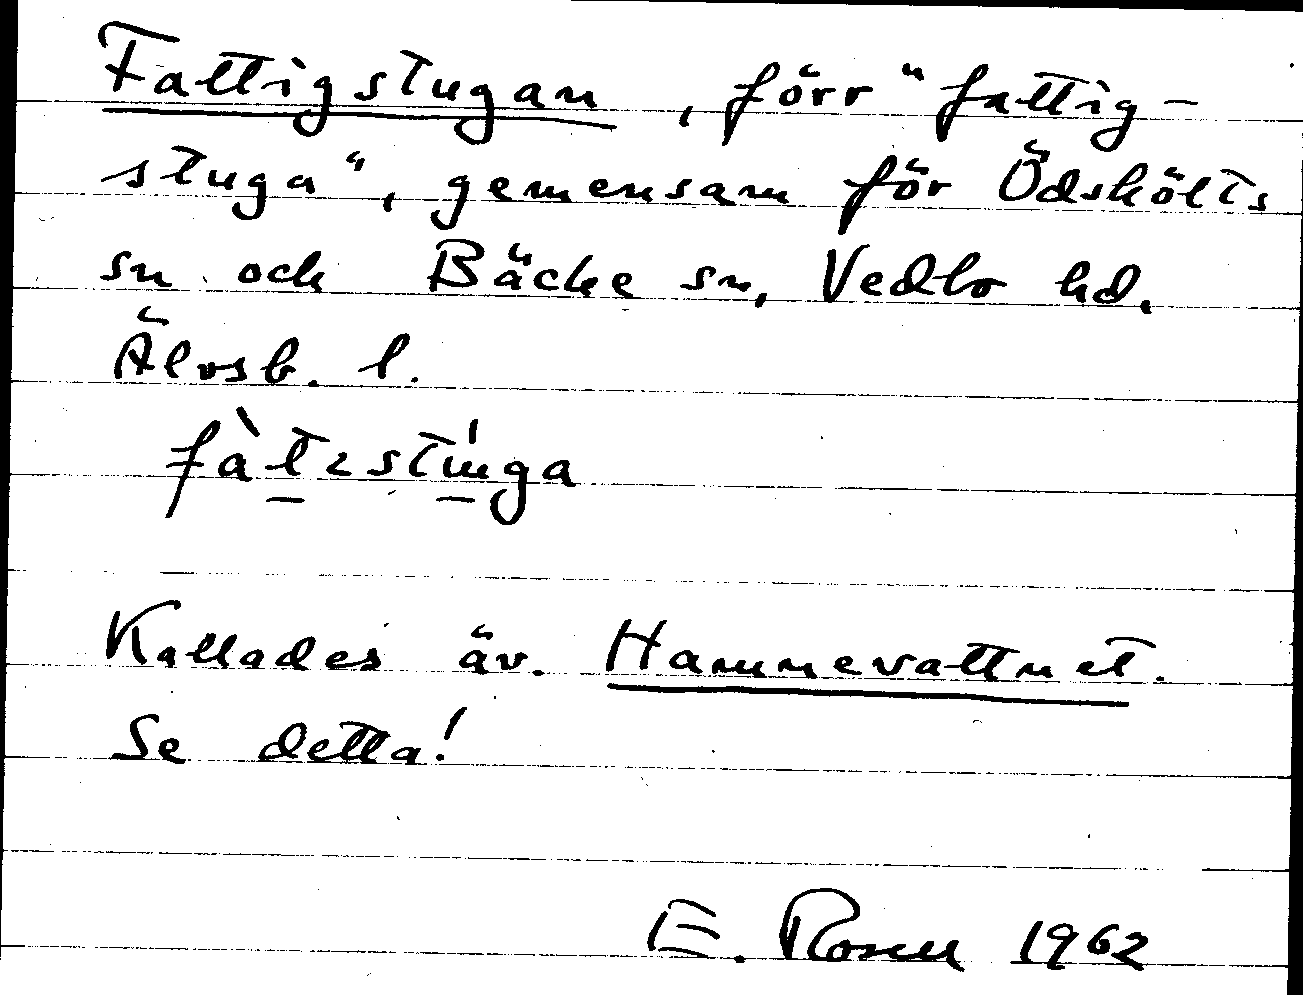 Fattigstugan, förr "fattig-
stuga", gemensam för Ödskölts
sn och Bäcke sn, Vedbo hd.
Älvsb. l.
Kallades äv. Hammevattnet.
Se detta!
E. Rosen 1962